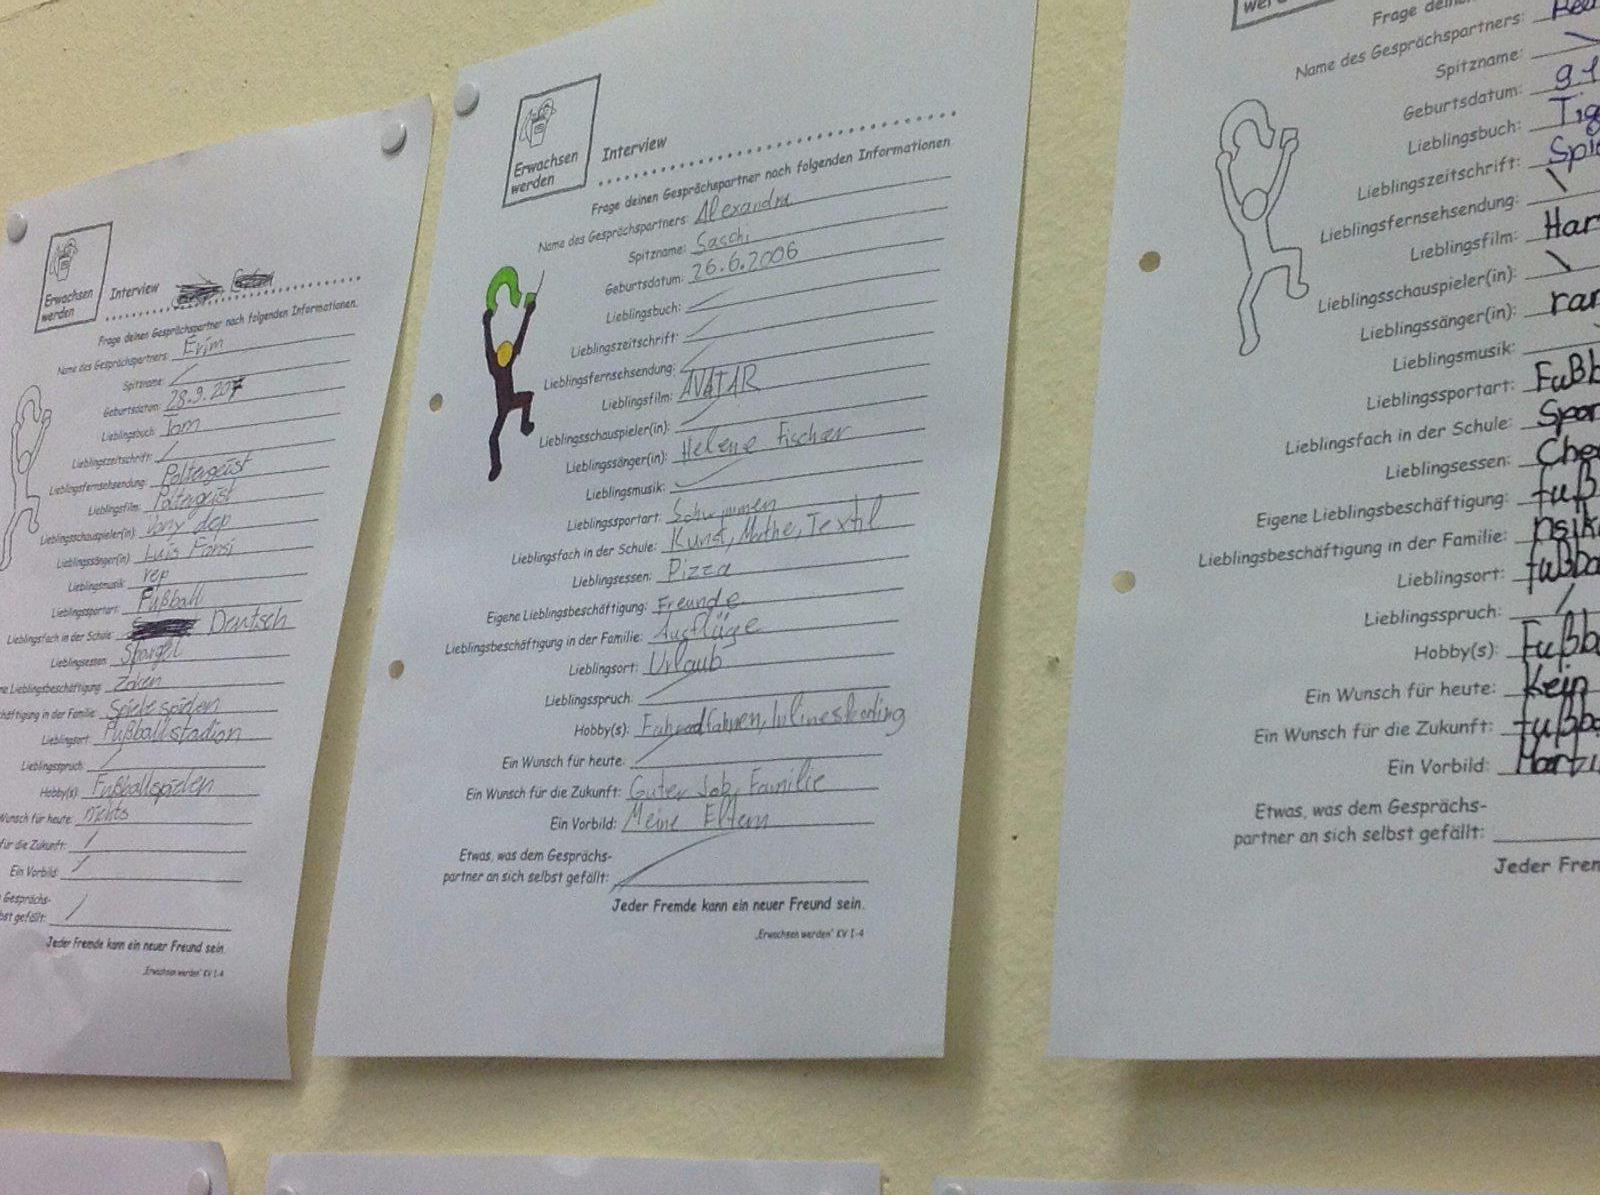 Erwachsen
werden
Interview
Frage deinen Gesprächspartner nach folgenden Informationen.
Name des Gesprächspartners: Erim
Spitzname:
Geburtsdatum: 28.9.207
Lieblingsbuch: Tom
Lieblingszeitschrift:
Lieblingsfernsehsendung: Poltergeist
Lieblingsfilm: Poltergeist
Lieblingsschauspieler(in): Jony dep
Lieblingssänger(in): Luis Fonsi
Lieblingsmusik: rep
Lieblingssportart: Fußball
Lieblingsfach in der Schule: Deutsch
Lieblingsessen: Spargel
ne Lieblingsbeschäftigung: Zoken
häftigung in der Familie: Spiele spielen
Lieblingsort: Fußballstadion
Lieblingsspruch:
Hobby(s): Fußballspielen
Wunsch für heute: nichts
für die Zukunft:
Ein Vorbild:
Gesprächs-
bst gefällt:
Jeder Fremde kann ein neuer Freund sein.
„Erwachsen werden" KV I-4
Erwachsen
werden
Interview
Frage deinen Gesprächspartner nach folgenden Informationen
Name des Gesprächspartners: Alexandra
Spitzname: Saschi
Geburtsdatum: 26.6.2006
Lieblingsbuch:
Lieblingszeitschrift:
Lieblingsfernsehsendung:
Lieblingsfilm: AVATAR
Lieblingsschauspieler(in):
Lieblingssänger(in): Helene Fischer
Lieblingsmusik:
Lieblingssportart: Schwimmen
Lieblingsfach in der Schule: Kunst, Mathe, Textil
Lieblingsessen: Pizza
Eigene Lieblingsbeschäftigung: Freunde
Lieblingsbeschäftigung in der Familie: Ausflüge
Lieblingsort: Urlaub
Lieblingsspruch:
Hobby(s): Fahrradfahren, Inlineskating
Ein Wunsch für heute:
Ein Wunsch für die Zukunft: Guter Job, Familie
Ein Vorbild: Meine Eltern
Etwas, was dem Gesprächs-
partner an sich selbst gefällt:
Jeder Fremde kann ein neuer Freund sein.
„Erwachsen werden" KV I-4
Frage
Name des Gesprächspartners:
Spitzname:
Geburtsdatum: 9.1
Lieblingsbuch: Tig
Lieblingszeitschrift: Spi
Lieblingsfernsehsendung:
Lieblingsfilm: Har
Lieblingsschauspieler(in):
Lieblingssänger(in): rar
Lieblingsmusik:
Lieblingssportart: Fußb
Lieblingsfach in der Schule: Spor
Lieblingsessen: Che
Eigene Lieblingsbeschäftigung: fuß
Lieblingsbeschäftigung in der Familie: risik
Lieblingsort: fußba
Lieblingsspruch:
Hobby(s): Fußb
Ein Wunsch für heute: Kein
Ein Wunsch für die Zukunft: fußba
Ein Vorbild:
Etwas, was dem Gesprächs-
partner an sich selbst gefällt:
Jeder Frem